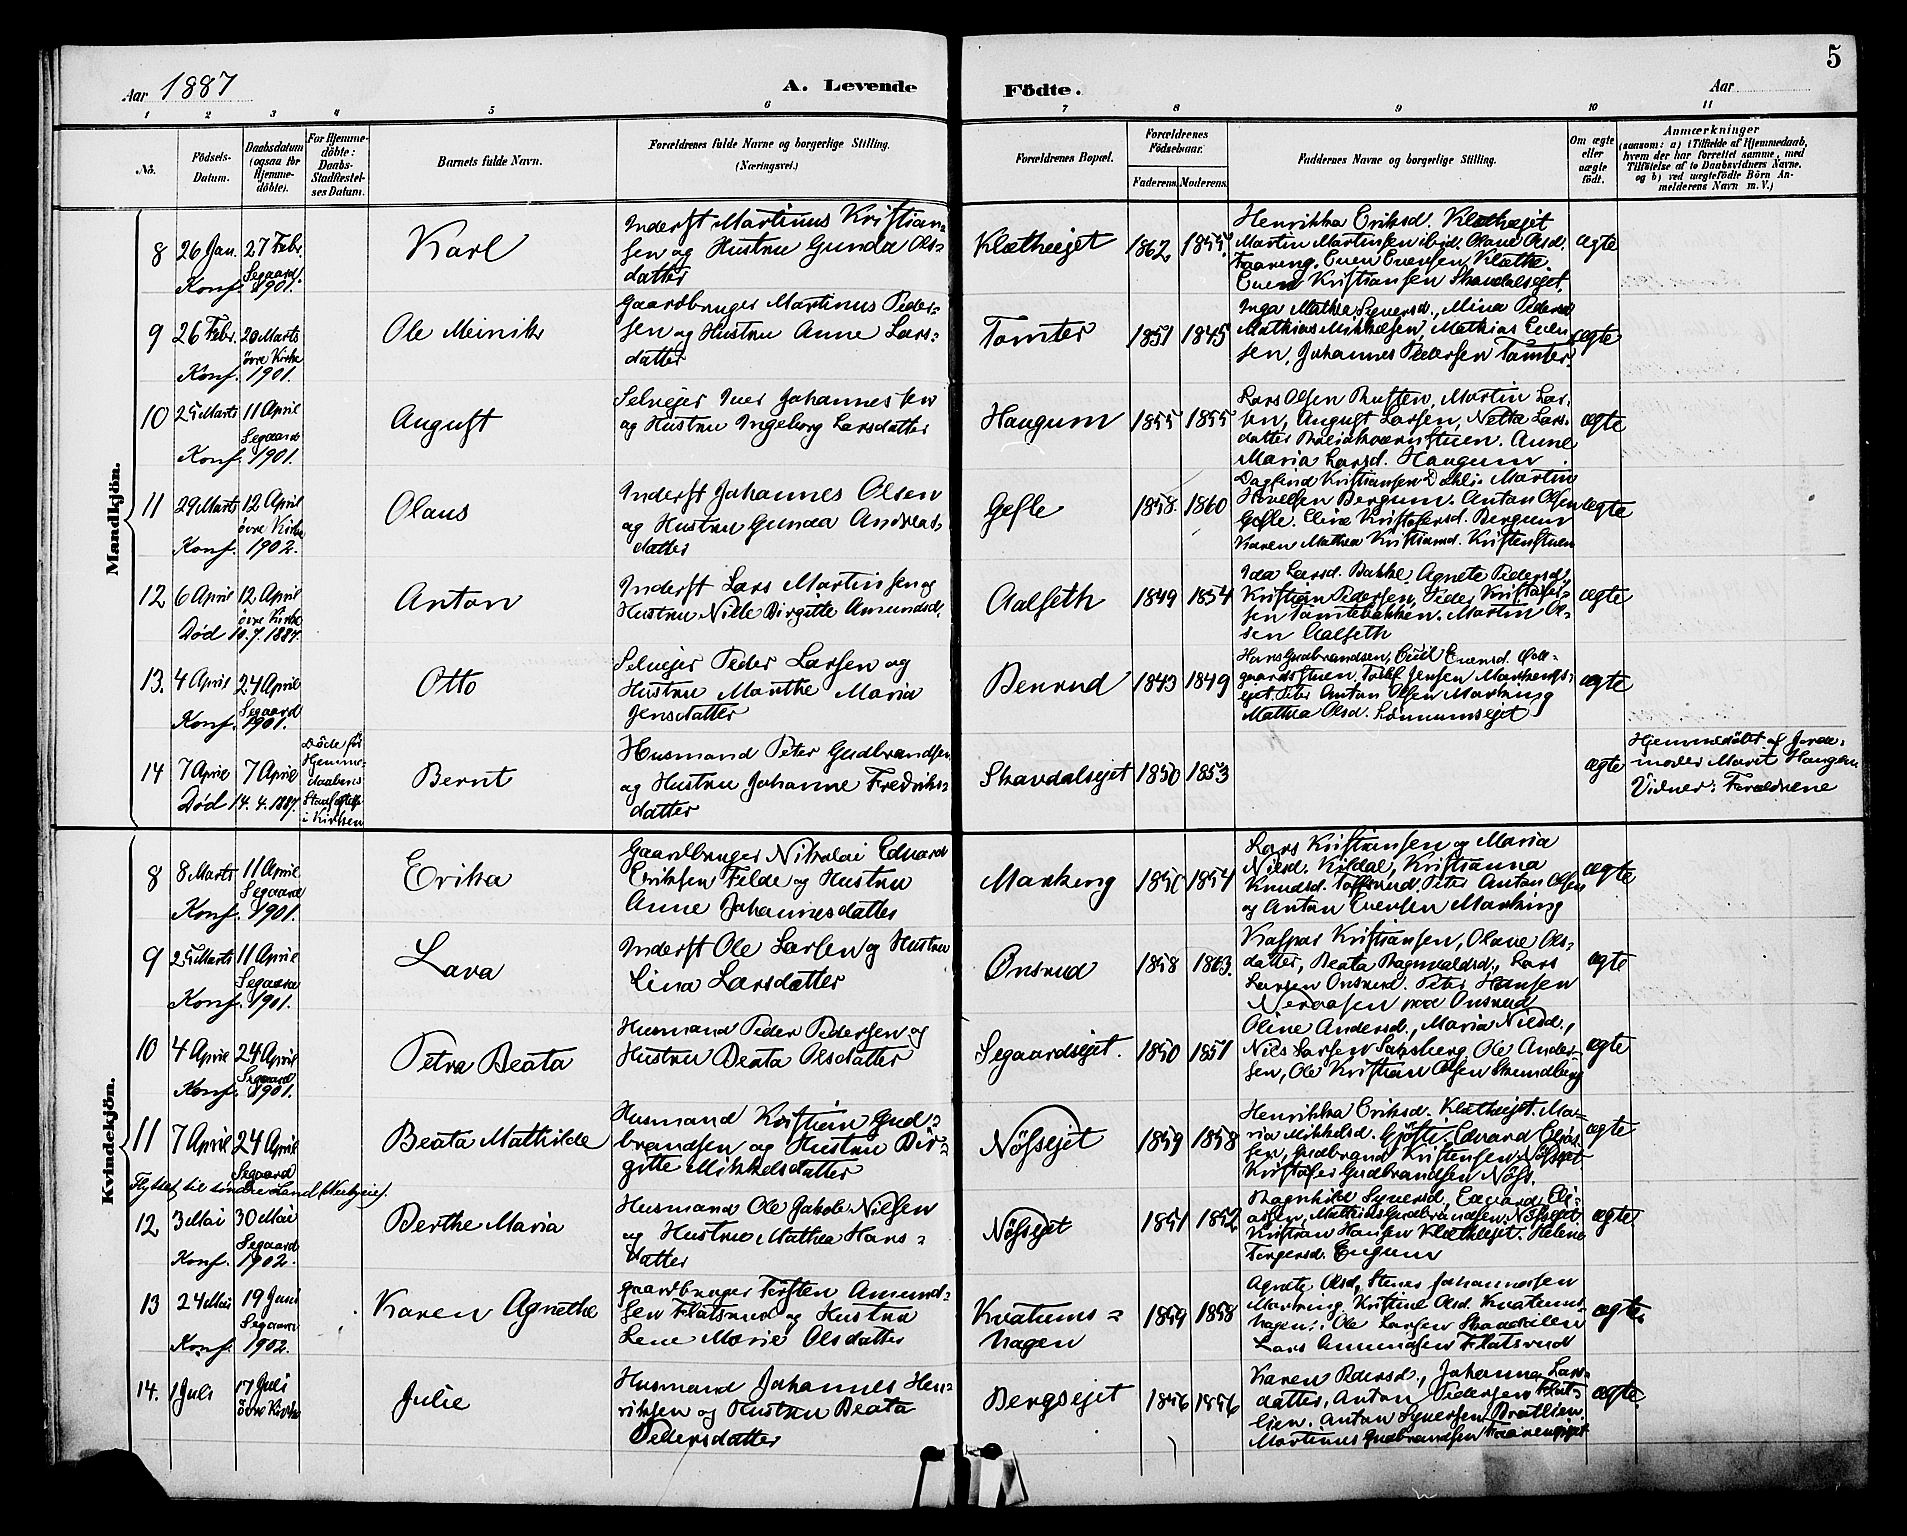 5
Aar 1887
A. Levende
Födte.
Aar
1 2 3 4 5 6 7 8 9 10 11
No.
Födsels-
Datum.
Daabsdatum
(ogsaa for
Hjemme-
döbte).
For Hjemme-
döbte:
Daabs-
Stadfæstel-
ses Datum.
Barnets fulde Navn.
Forældrenes fulde Navne og borgerlige Stilling.
(Næringsvei.)
Forældrenes Bopæl.
Forældrenes
Födselsaar.
Faderens. Moderens.
Faddernes Navne og borgerlige Stilling.
Om ægte
eller
uægte
födt.
Anmærkninger
(saasom: a) i Tilfælde af Hjemmedaab,
hvem der har forrettet samme, med
Tilföielse af to Daabsvidners Navne.
og b) ved uægtefödte Börn An-
melderens Navn m. V.)
Mandkjön.
8 26 Jan. 27 Febr.
Segaard
Konf. 1901.
Karl
Inderst Martinus Kristian-
sen og Hustru Gunda Ols-
datter
Klætheiet 1862 1855
Henrikka Eriksd. Klætheiet
Martin Martinsen ibid. Olane Olsd.
Faaring. Even Evensen, Klæthe
Even Kristiansen Skavdalsejet.
ægte
9 26 Febr. 20 Marts
övre Kirke
Konf. 1901.
Ole Meinik
Gaardbruger Martinus Peder-
sen og Hustru Anne Lars-
datter
Tomter 1851 1845
Inga Mathea Syversd., Mina Pedersd
Mathias Mikkelsen, Mathias Even
sen, Johannes Pedersen Tomter.
ægte
10 25 Marts 11 April
Segaard
Konf. 1901.
August
Selveier Iver Johannessen
og Hustru Ingeborg Larsdatter
Haugum 1855 1855
Lars Olsen Rusten, Martin Lar-
sen, August Larsen, Netta Lars-
datter. Anne
Maria Larsd. Haugum
ægte
11 29 Marts 12 April
övre Kirke
Konf. 1902.
Olaus
Inderst Johannes Olsen
og Hustru Gunda Andreas-
datter
Gefle 1858 1860
Dagfind Kristiansen Dahl. Martin
Hovelsen Bergum. Anton Olsen
Gefle. Eline Kristofersd. Bergum
Karen Mathea Kristiansd. Kristenstuen
ægte
12 6 April 12 April
övre Kirke
Död 10.7.1887.
Anton
Inderst Lars Martinsen og
Hustru Nille Birgitte Amundsd.
Aalseth 1849 1854
Ida Larsd. Bakke, Agnete Pedersd,
Kristian Pedersen, Peder Kristofer-
sen Tomtebakken. Martin Ol-
sen Aalseth
ægte
13. 4 April 24 April
Segaard
Konf. 1901.
Otto
Selveier Peder Larsen og
Hustru Marthe Maria
Jensdatter
Benrud 1843 1849
Hans Gudbrandsen, Evensd.
gaardsstuen, Jensen Markengs-
ejet. Peter Anton Olsen Markeng
Mathea Olsd. Lönnumsejet
ægte
14 7 April 7 April
Död 14.4.1887.
Döde för
Hjemme-
daabens
Stadfæstelse
i Kirken
Bernt
Husmand Peter Gudbrandsen
og Hustru Johanne Fredriks-
datter
Skavdalsejet 1850 1853
ægte
Hjemmedöbt af Jorde-
moder Marit Haugen
Vidner: Forældrene
Kvindekjön.
8 8 Marts 11 April
Segaard
Konf. 1901.
Erika
Gaardbruger Nikolai Edvard
Eriksen Felde og Hustru
Anne Johannesdatter
Markeng 1850 1854
Lars Kristiansen og Maria
Nilsd. Kildal, Kristianna
Knudsd. Toffsrud. Peter Anton Olsen
og Anton Evensen Markeng
ægte
9 25 Marts 11 April
Segaard
Konf. 1901.
Lava
Inderst Ole Larsen og Hustru
Lina Larsdatter
Onsrud 1858 1863
Kaspar Kristiansen, Olave Ols-
datter, Beata Ragnvaldsd., Lars
Larsen Onsrud. Peter Hansen
Neraasen ved Onsrud
ægte
10 4 April 24 April
Segaard
Konf. 1901.
Petra Beata
Husmand Peder Pedersen og
Hustru Beata Olsdatter
Segaardsejet. 1850 1851
Oline Andersd., Maria Nilsd.,
Nils Larsen. Ole Ander-
sen, Ole Kristian Olsen Strundberg
ægte
11 7 April 24 April
Segaard
Flyttet til söndre Land.
Beata Mathilde
Husmand Kristian Gud-
brandsen og Hustru Bir-
gitte Mikkelsdatter
Nössejet 1859 1858
Henrikka Eriksd. Klætheiet. Ma-
ria Mikkelsd. Gjöste. Edvard Elias-
sen, Gudbrand Kristensen Nössejet
Kristofer Gudbrandsen Nöss.
ægte
12 3 Mai 30 Mai
Segaard
Konf. 1902.
Berthe Maria
Husmand Ole Jakob Nilsen
og Hustru Mathea Hans-
datter
Nössejet 1851 1852
Ragnhild Syversd. Edvard Eli-
asen, Mathias Gudbrandsen Nössejet
Kristian Hansen Klætheiet. Helene
Torgersd. Engum
ægte
13 24 Mai 19 Juni
Segaard
Konf. 1902.
Karen Agnethe
Gaardbruger Torsten Amund-
sen Flatsrud og Hustru
Lene Marie Olsdatter
Kvatums-
hagen
1859 1858
Agnete Olsd, Stener Johannessen
Markeng. Kristine Olsd. Kvatums-
hagen. Ole Larsen
Lars Amundsen Flatsrud
ægte
14. 1 Juli 17 Juli
övre Kirke
Julie
Husmand Johannes Hen-
riksen og Hustru Beata
Pedersdatter
Bergsejet 1856 1856
Karen Pedersd., Johanna Lars-
datter, Anton Pedersen
lien. Anton Syversen Bratlien.
Martinus Gudbrandsen Faarengejet
ægte